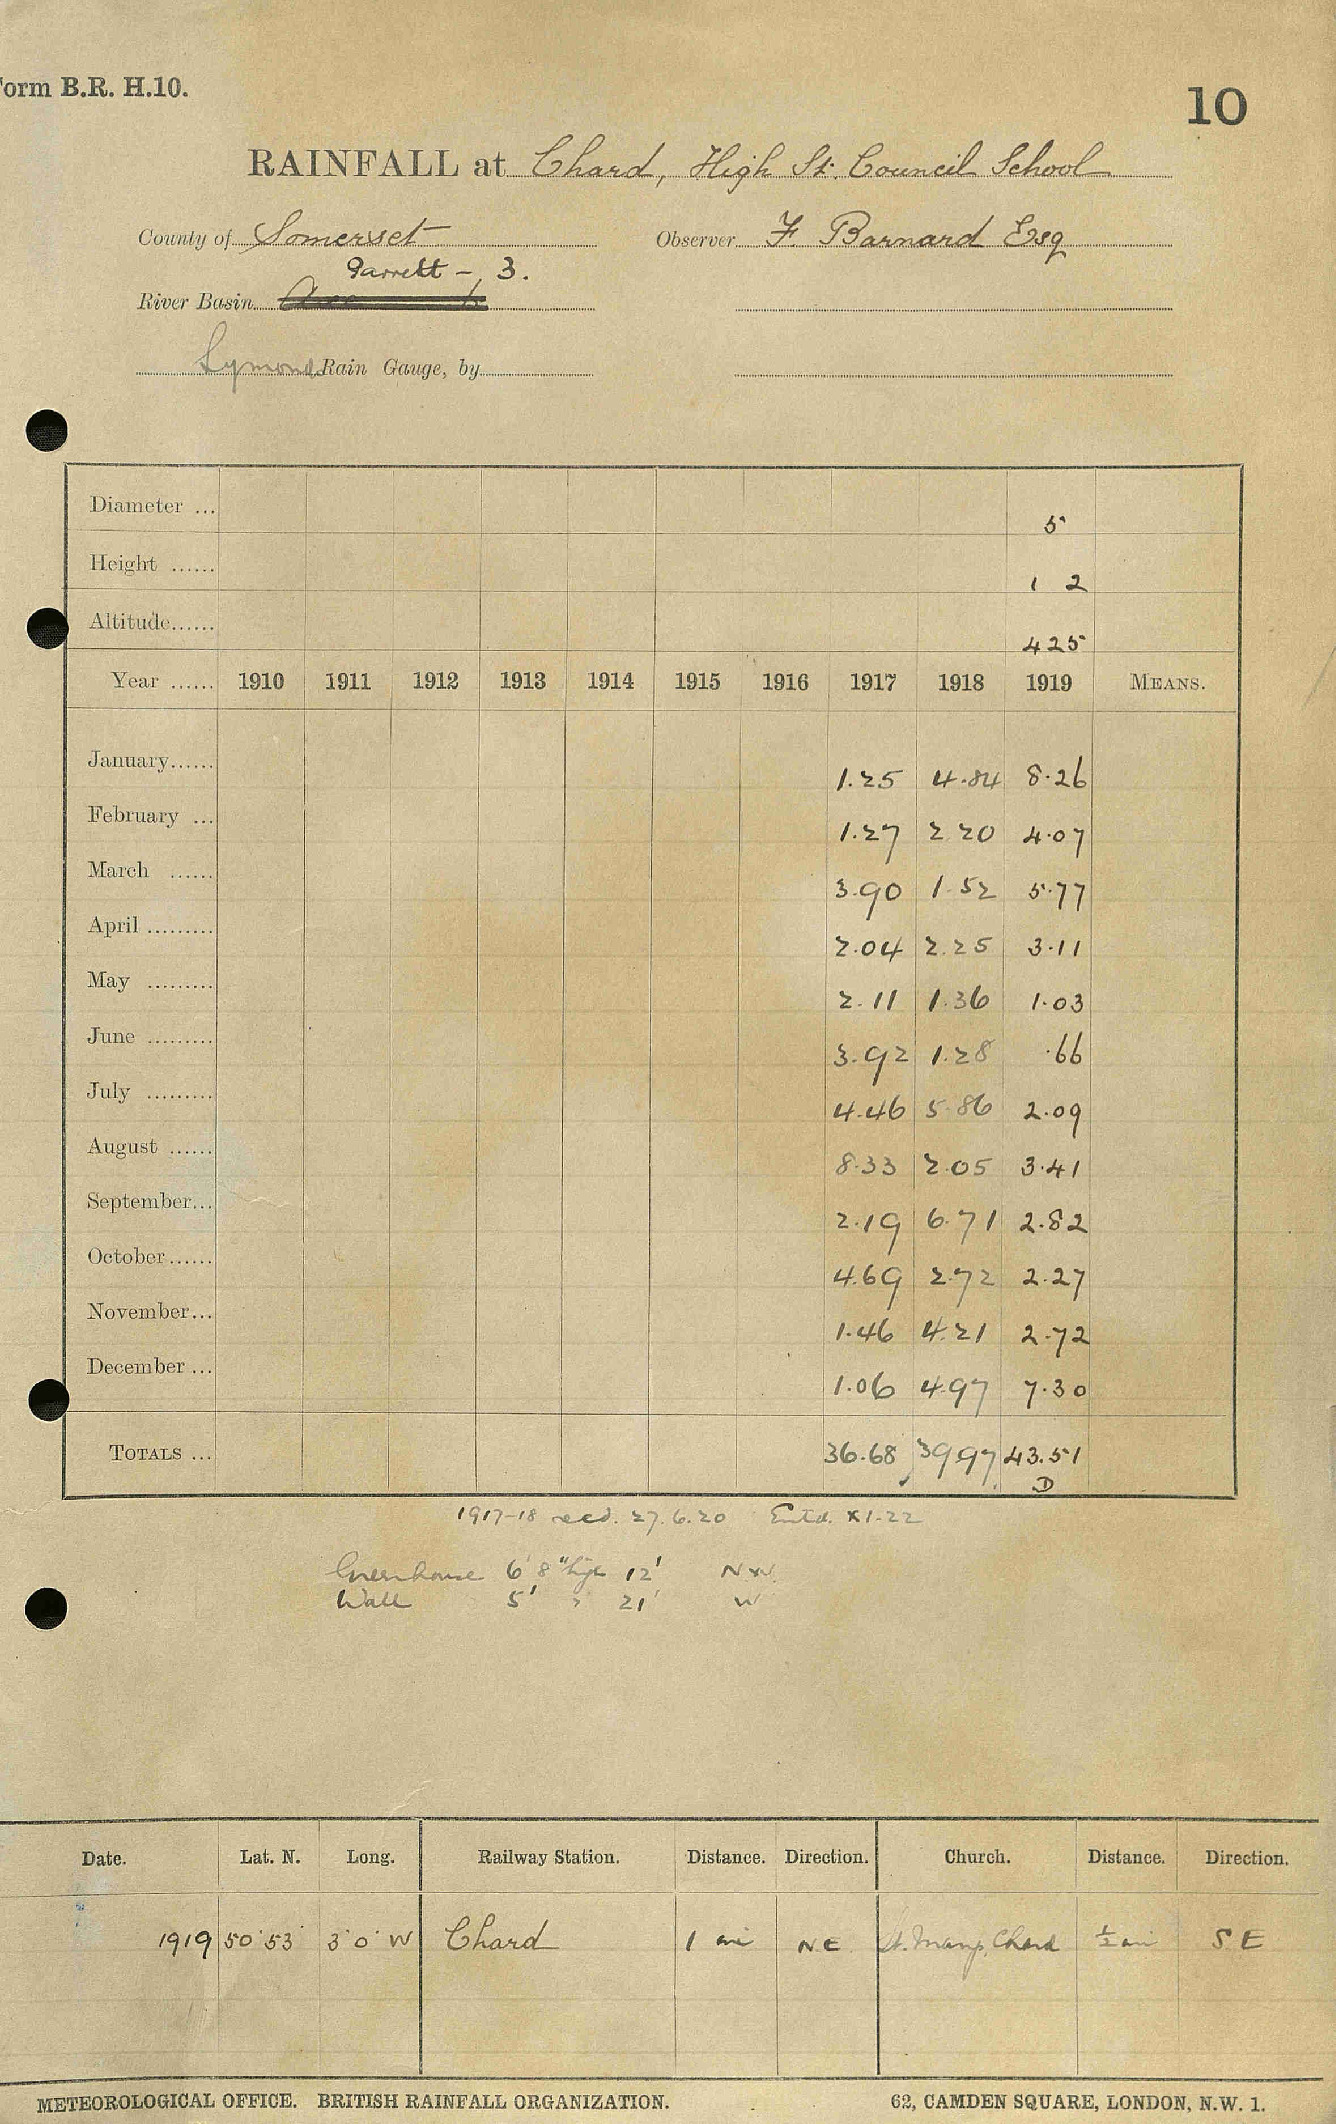 Form B.R. H.10.
10
RAINFALL at Chard, High St. Council School
County of Somerset Observer F. Barnard Esq
Parrett - 3.
River Basin
Symons Rain Gauge, by
Diameter ... 5
Height ...... 1 2
Altitude...... 425
Year ...... 1910 1911 1912 1913 1914 1915 1916 1917 1918 1919 MEANS.
January...... 1.25 4.84 8.26
February ... 1.27 2.20 4.07
March ...... 3.90 1.52 5.77
April ......... 2.04 2.25 3.11
May ......... 2.11 1.36 1.03
June ......... 3.92 1.28 .66
July ......... 4.46 5.86 2.09
August ...... 8.33 2.05 3.41
September... 2.19 6.71 2.82
October...... 4.69 2.72 2.27
November... 1.46 4.21 2.72
December ... 1.06 4.97 7.30
TOTALS ... 36.68 39.97 43.51
D
1917-18 recd. 27.6.20 Entd. X1-22
Greenhouse 6' 8" high 12' NW
Wall 5' " 21' W
Date. Lat. N. Long. Railway Station. Distance. Direction. Church. Distance. Direction.
1919 50°53' 3°0' W Chard 1 mi NE St. Mary, Chard ½ mi SE
METEOROLOGICAL OFFICE. BRITISH RAINFALL ORGANIZATION. 62, CAMDEN SQUARE, LONDON, N.W. 1.